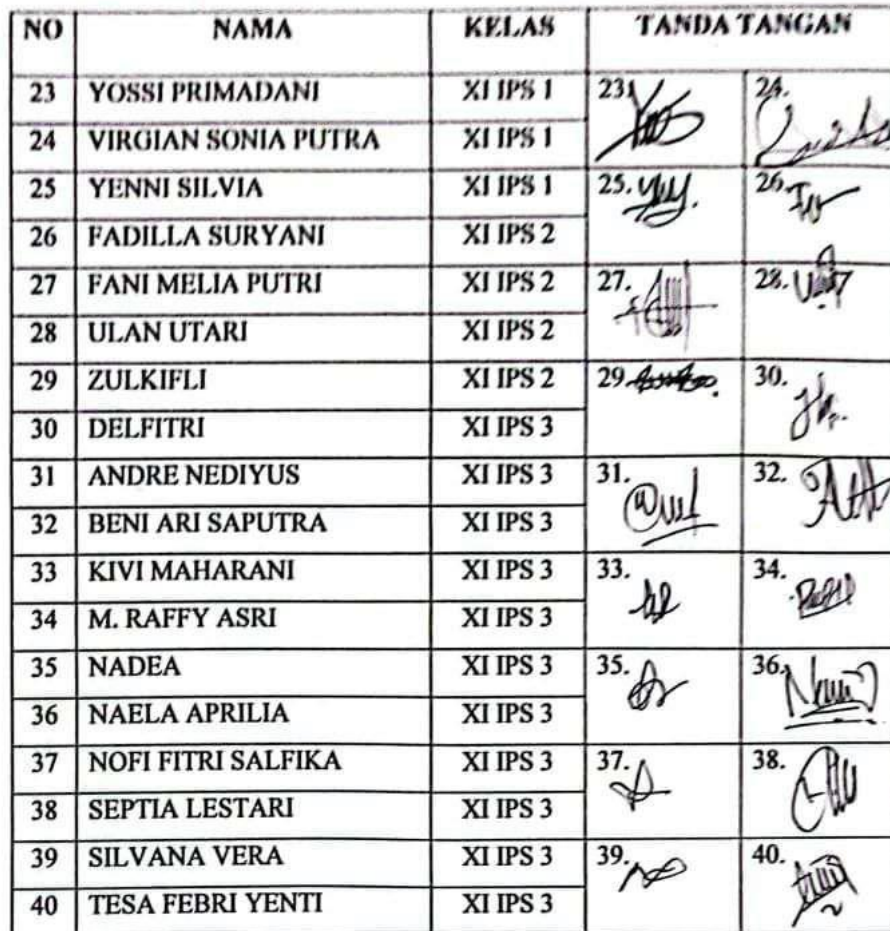 NO NAMA KELAS TANDA TANGAN
23 YOSSI PRIMADANI XI IPS 1 23. 24.
24 VIRGIAN SONIA PUTRA XI IPS 1
25 YENNI SILVIA XI IPS 1 25. 26.
26 FADILLA SURYANI XI IPS 2
27 FANI MELIA PUTRI XI IPS 2 27. 28.
28 ULAN UTARI XI IPS 2
29 ZULKIFLI XI IPS 2 29. 30.
30 DELFITRI XI IPS 3
31 ANDRE NEDIYUS XI IPS 3 31. 32.
32 BENI ARI SAPUTRA XI IPS 3
33 KIVI MAHARANI XI IPS 3 33. 34.
34 M. RAFFY ASRI XI IPS 3
35 NADEA XI IPS 3 35. 36.
36 NAELA APRILIA XI IPS 3
37 NOFI FITRI SALFIKA XI IPS 3 37. 38.
38 SEPTIA LESTARI XI IPS 3
39 SILVANA VERA XI IPS 3 39. 40.
40 TESA FEBRI YENTI XI IPS 3